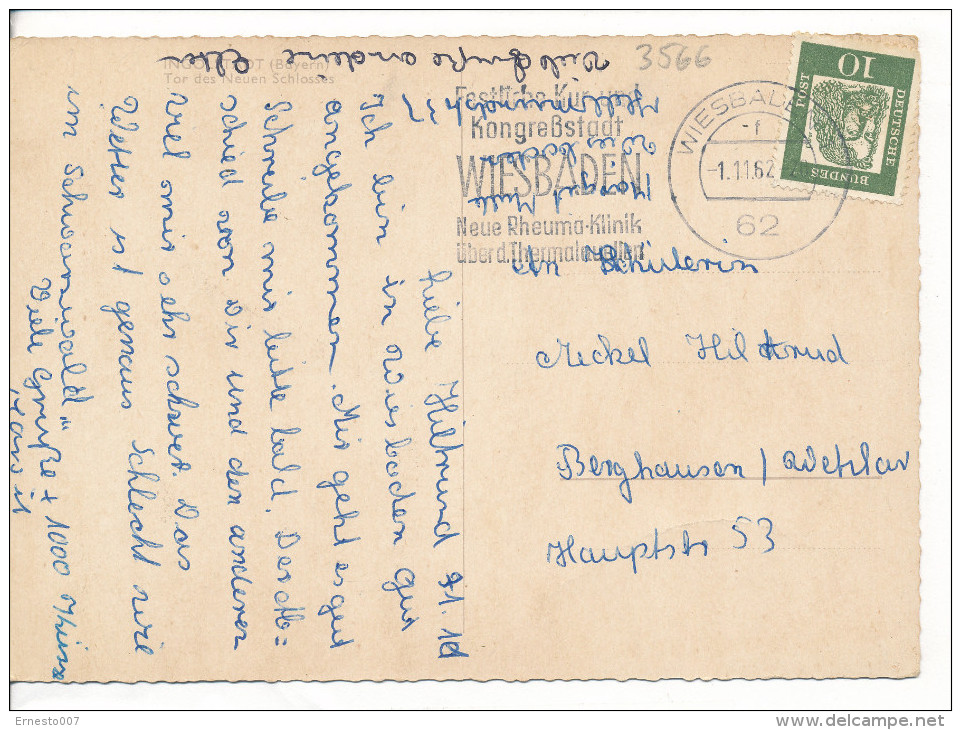 INGOLSTADT (Bayern)
Tor des Neuen Schlosses
3566
Festliche Kur- und
Kongreßstadt
WIESBADEN
Neue Rheuma-Klinik
über d. Thermalquellen
WIESBADEN
-f
-1.11.62
62
10
DEUTSCHE
BUNDES
POST
Liebe Hiltrud
Ich bin in Wiesbaden gut
angekommen. Mir geht es gut
Schreibe mir bitte bald. Der Ab=
schied von Dir und den anderen
viel mir sehr schwer. Das
Wetter ist genaus schlecht wie
im Schwarzwald."
Viele Grüße + 1000
Viele Grüße an deine
An Schülerin
Meckel Hiltrud
Berghausen / Wetzlar
Hauptstr 53
Ernesto007
delcampe.net